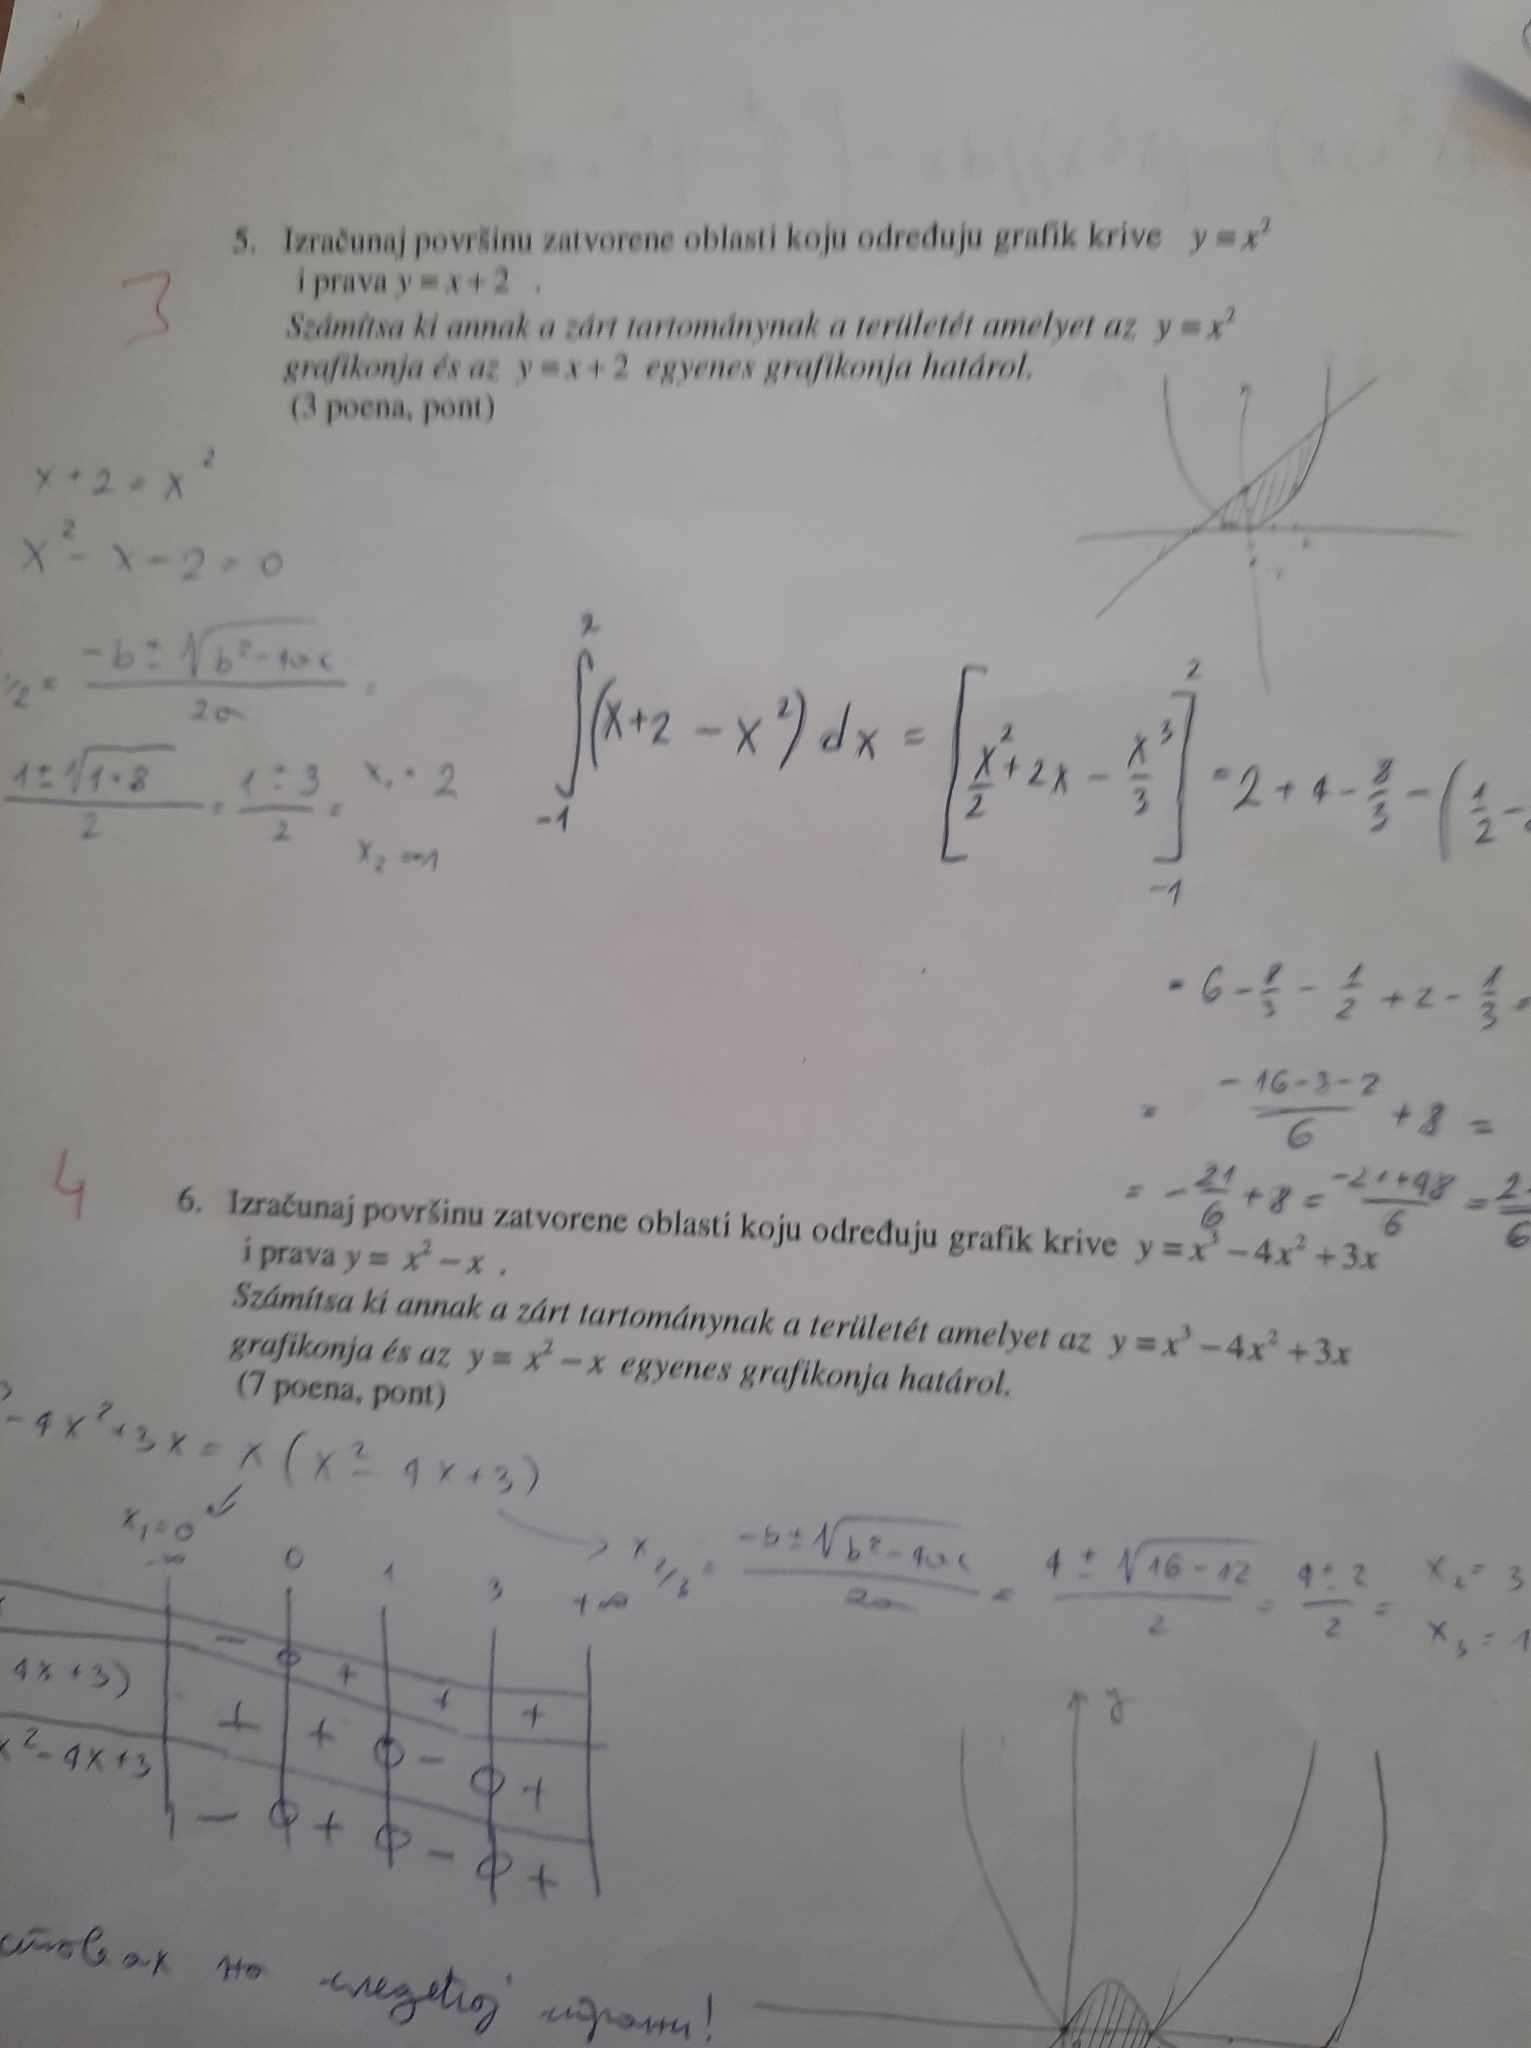 5. Izračunaj površinu zatvorene oblasti koju određuju grafik krive y = x²
i prava y = x + 2 .
3
Számítsa ki annak a zárt tartománynak a területét amelyet az y = x²
grafikonja és az y = x + 2 egyenes grafikonja határol.
(3 poena, pont)
x + 2 = x²
x² - x - 2 = 0
1/2 = (-b ± √(b² - 4ac))/2a =
(1 ± √(1+8))/2 = (1 ± 3)/2 = x₁ = 2
x₂ = -1
∫₋₁² (x + 2 - x²) dx = [x²/2 + 2x - x³/3]₋₁² = 2 + 4 - 8/3 - (1/2 -
= 6 - 8/3 - 1/2 + 2 - 1/3 =
= (-16-3-2)/6 + 8 =
= -21/6 + 8 = (-21+48)/6 = 2/6
4
6. Izračunaj površinu zatvorene oblasti koju određuju grafik krive y = x³ - 4x² + 3x
i prava y = x² - x .
Számítsa ki annak a zárt tartománynak a területét amelyet az y = x³ - 4x² + 3x
grafikonja és az y = x² - x egyenes grafikonja határol.
(7 poena, pont)
- 4x² + 3x = x(x² - 4x + 3)
x₁ = 0
x₂/₃ = (-b ± √(b² - 4ac))/2a = (4 ± √(16-12))/2 = (4 ± 2)/2 = x₂ = 3
x₃ = 1
-∞ 0 1 3 +∞
- 0 + + +
4x + 3) + + 0 - 0 +
x² - 4x + 3 - 0 + 0 - 0 +
y
на следећој страни!